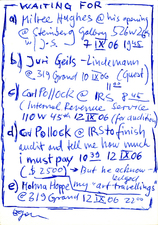 WAITING FOR
a) Miltee Hughes @ his opening
@ Steinberg Gallery 526W26
w J-S. 7 IX 06 19 45
b) Juri Geils - Lindemann
@ 319 Grand 10 IX 06 (Quest)
11 00
c) Carl Pollock @ IRS 8 45
(Internal Revenue Service
110 W 45th 12 IX 06 (for audition)
d) Carl Pollock @ IRS to finish
audit and tell me how much
i must pay 10 30 12 IX 06
($2500) → But he acknow-
ledged
e) Mohna Hoppe my "art travellings"
@ 319 Grand 12 IX 06 22 00